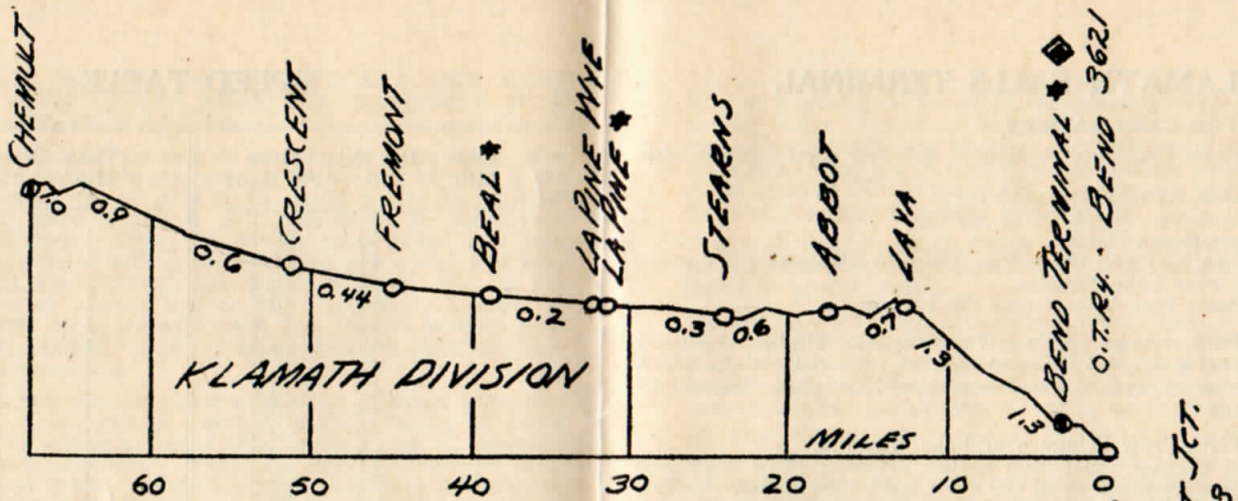 CHEMULT
CRESCENT
FREMONT
BEAL *
LAPINE WYE
LAPINE *
STEARNS
ABBOT
LAVA
BEND TERMINAL *
O.T.RY. BEND 3621
JCT.
1.0
0.9
0.6
0.44
0.2
0.3
0.6
0.7
1.3
1.3
KLAMATH DIVISION
MILES
60
50
40
30
20
10
0